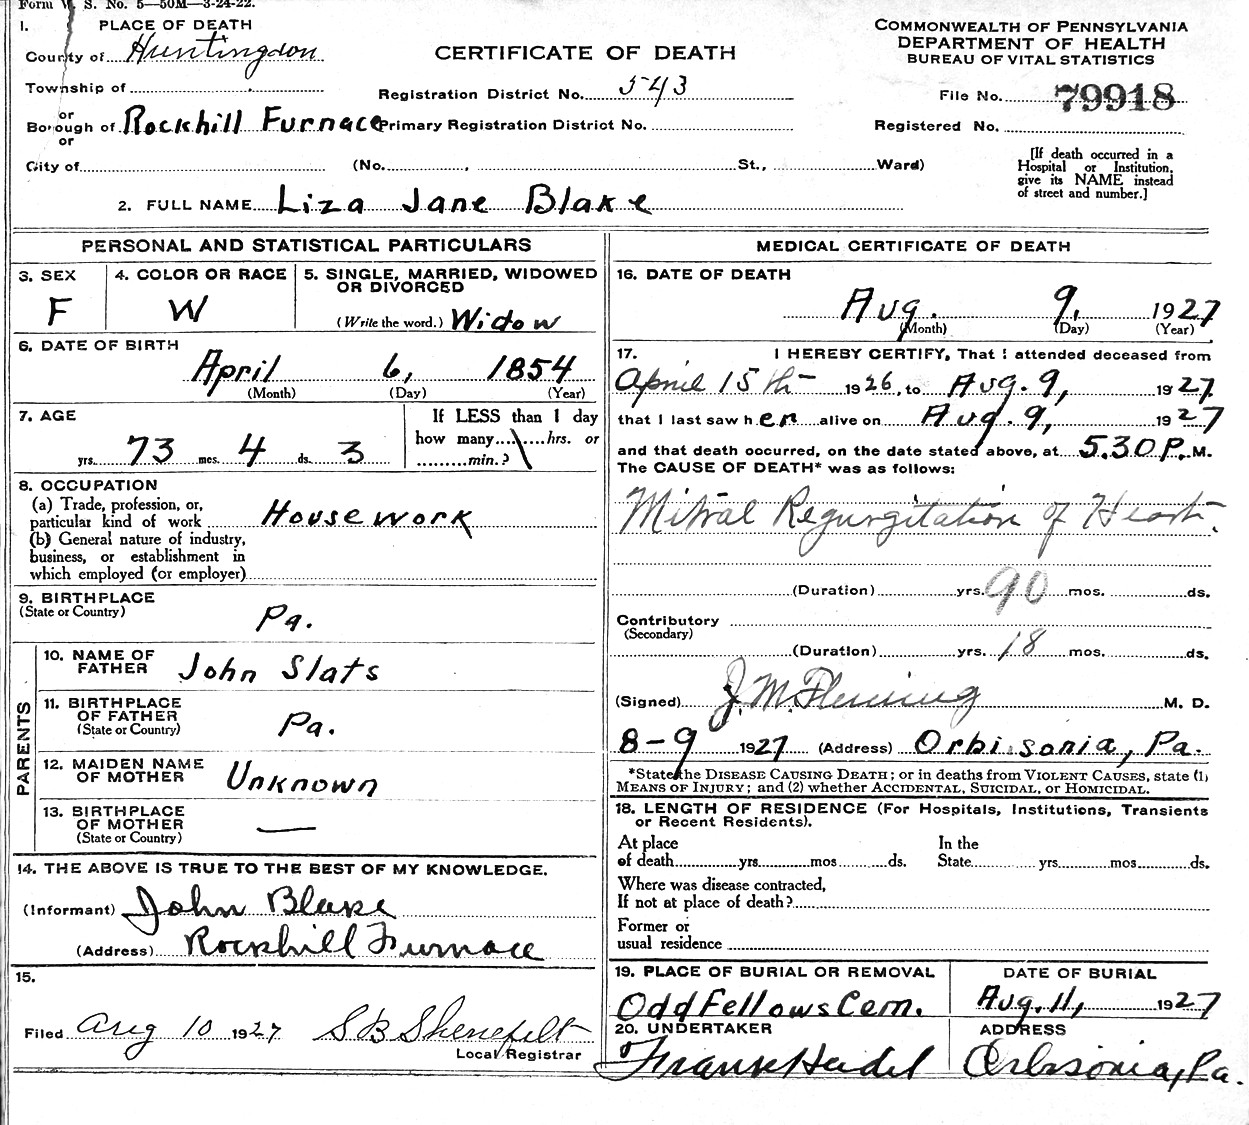 Form V. S. No. 5—50M—3-24-22.
1. PLACE OF DEATH
County of Huntingdon
Township of
or
Borough of Rockhill Furnace
or
City of (No. , St., Ward)
CERTIFICATE OF DEATH
Registration District No. 543
Primary Registration District No.
COMMONWEALTH OF PENNSYLVANIA
DEPARTMENT OF HEALTH
BUREAU OF VITAL STATISTICS
File No. 79918
Registered No.
[If death occurred in a
Hospital or Institution,
give its NAME instead
of street and number.]
2. FULL NAME Liza Jane Blake
PERSONAL AND STATISTICAL PARTICULARS
3. SEX
F
4. COLOR OR RACE
W
5. SINGLE, MARRIED, WIDOWED
OR DIVORCED
(Write the word.) Widow
6. DATE OF BIRTH
April 6, 1854
(Month) (Day) (Year)
7. AGE
yrs. 73 mos. 4 ds. 3
If LESS than 1 day
how many hrs. or
min.?
8. OCCUPATION
(a) Trade, profession, or,
particular kind of work Housework
(b) General nature of industry,
business, or establishment in
which employed (or employer)
9. BIRTHPLACE
(State or Country)
Pa.
PARENTS
10. NAME OF
FATHER John Slats
11. BIRTHPLACE
OF FATHER
(State or Country) Pa.
12. MAIDEN NAME
OF MOTHER Unknown
13. BIRTHPLACE
OF MOTHER —
(State or Country)
14. THE ABOVE IS TRUE TO THE BEST OF MY KNOWLEDGE.
(Informant) John Blake
(Address) Rockhill Furnace
15.
Filed Aug 10 1927 S B Shenefelt
Local Registrar
MEDICAL CERTIFICATE OF DEATH
16. DATE OF DEATH
Aug. 9, 1927
(Month) (Day) (Year)
17. I HEREBY CERTIFY, That I attended deceased from
April 15th 1926, to Aug. 9, 1927
that I last saw her alive on Aug. 9, 1927
and that death occurred, on the date stated above, at 5.30 P. M.
The CAUSE OF DEATH* was as follows:
Mitral Regurgitation of Heart.
(Duration) yrs. 90 mos. ds.
Contributory
(Secondary)
(Duration) yrs. 18 mos. ds.
(Signed) J. M. Fleming M. D.
8-9 1927 (Address) Orbisonia, Pa.
*State the DISEASE CAUSING DEATH; or in deaths from VIOLENT CAUSES, state (1)
MEANS OF INJURY; and (2) whether ACCIDENTAL, SUICIDAL, OR HOMICIDAL.
18. LENGTH OF RESIDENCE (For Hospitals, Institutions, Transients
or Recent Residents).
At place In the
of death yrs. mos ds. State yrs. mos ds.
Where was disease contracted,
If not at place of death?
Former or
usual residence
19. PLACE OF BURIAL OR REMOVAL
Odd Fellows Cem.
DATE OF BURIAL
Aug. 11, 1927
20. UNDERTAKER
Frank Heidel
ADDRESS
Orbisonia, Pa.